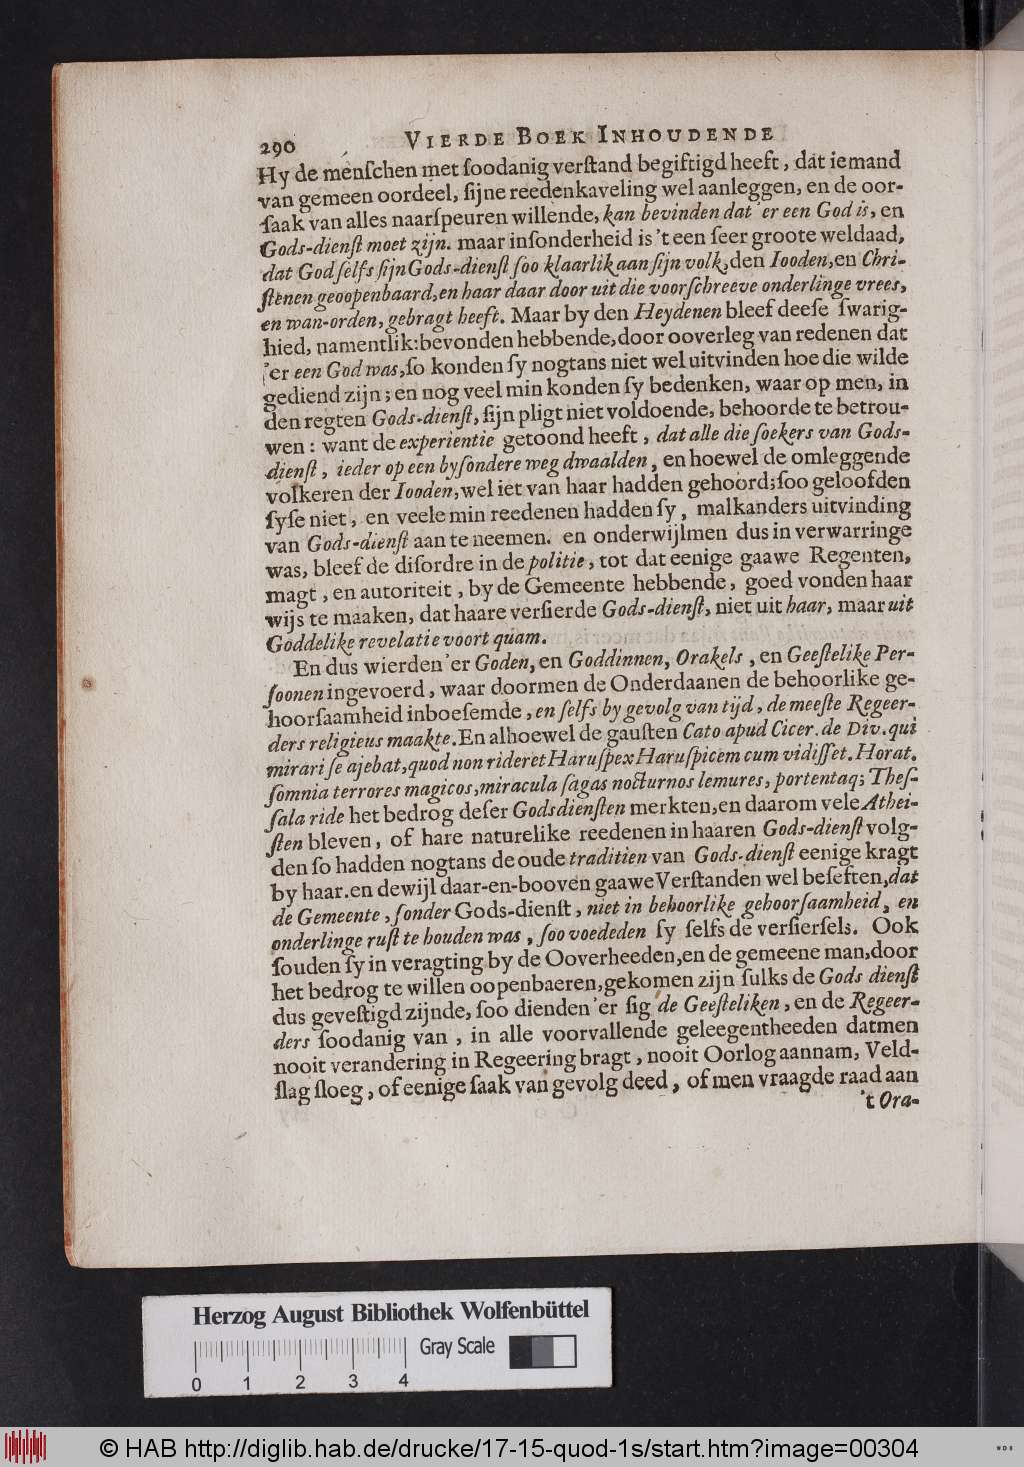 290 VIERDE BOEK INHOUDENDE
Hy de menſchen met ſoodanig verſtand begiftigd heeft, dat iemand
van gemeen oordeel, ſijne reedenkaveling wel aanleggen, en de oor-
ſaak van alles naarſpeuren willende, kan bevinden dat 'er een God is, en
Gods-dienſt moet zijn. maar inſonderheid is 't een ſeer groote weldaad,
dat God ſelfs ſijn Gods-dienſt ſoo klaarlik aan ſijn volk, den Iooden, en Chri-
ſtenen geoopenbaard, en haar daar door uit die voorſchreeve onderlinge vrees,
en wan-orden, gebragt heeft. Maar by den Heydenen bleef deeſe ſwarig-
hied, namentlik: bevonden hebbende, door ooverleg van redenen dat
'er een God was, ſo konden ſy nogtans niet wel uitvinden hoe die wilde
gediend zijn; en nog veel min konden ſy bedenken, waar op men, in
den regten Gods-dienſt, ſijn pligt niet voldoende, behoorde te betrou-
wen: want de experientie getoond heeft, dat alle die ſoekers van Gods-
dienſt, ieder op een byſondere weg dwaalden, en hoewel de omleggende
volkeren der Iooden, wel iet van haar hadden gehoord; ſoo geloofden
ſyſe niet, en veele min reedenen hadden ſy, malkanders uitvinding
van Gods-dienſt aan te neemen. en onderwijlmen dus in verwarringe
was, bleef de diſordre in de politie, tot dat eenige gaawe Regenten,
magt, en autoriteit, by de Gemeente hebbende, goed vonden haar
wijs te maaken, dat haare verſierde Gods-dienſt, niet uit haar, maar uit
Goddelike revelatie voort quam.
En dus wierden 'er Goden, en Goddinnen, Orakels, en Geeſtelike Per-
ſoonen ingevoerd, waar doormen de Onderdaanen de behoorlike ge-
hoorſaamheid inboeſemde, en ſelfs by gevolg van tijd, de meeſte Regeer-
ders religieus maakte. En alhoewel de gauſten Cato apud Cicer. de Div. qui
mirari ſe ajebat, quod non rideret Haruſpex Haruſpicem cum vidiſſet. Horat.
ſomnia terrores magicos, miracula ſagas nocturnos lemures, portentaq; Theſ-
ſala ride het bedrog deſer Godsdienſten merkten, en daarom vele Athei-
ſten bleven, of hare naturelike reedenen in haaren Gods-dienſt volg-
den ſo hadden nogtans de oude traditien van Gods-dienſt eenige kragt
by haar. en dewijl daar-en-booven gaawe Verſtanden wel beſeften, dat
de Gemeente, ſonder Gods-dienſt, niet in behoorlike gehoorſaamheid, en
onderlinge ruſt te houden was, ſoo voededen ſy ſelfs de verſierſels. Ook
ſouden ſy in veragting by de Ooverheeden, en de gemeene man, door
het bedrog te willen oopenbaeren, gekomen zijn ſulks de Gods dienſt
dus geveſtigd zijnde, ſoo dienden 'er ſig de Geeſteliken, en de Regeer-
ders ſoodanig van, in alle voorvallende geleegentheeden datmen
nooit verandering in Regeering bragt, nooit Oorlog aannam, Veld-
ſlag ſloeg, of eenige ſaak van gevolg deed, of men vraagde raad aan
't Ora-
Herzog August Bibliothek Wolfenbüttel
Gray Scale
0 1 2 3 4
© HAB http://diglib.hab.de/drucke/17-15-quod-1s/start.htm?image=00304